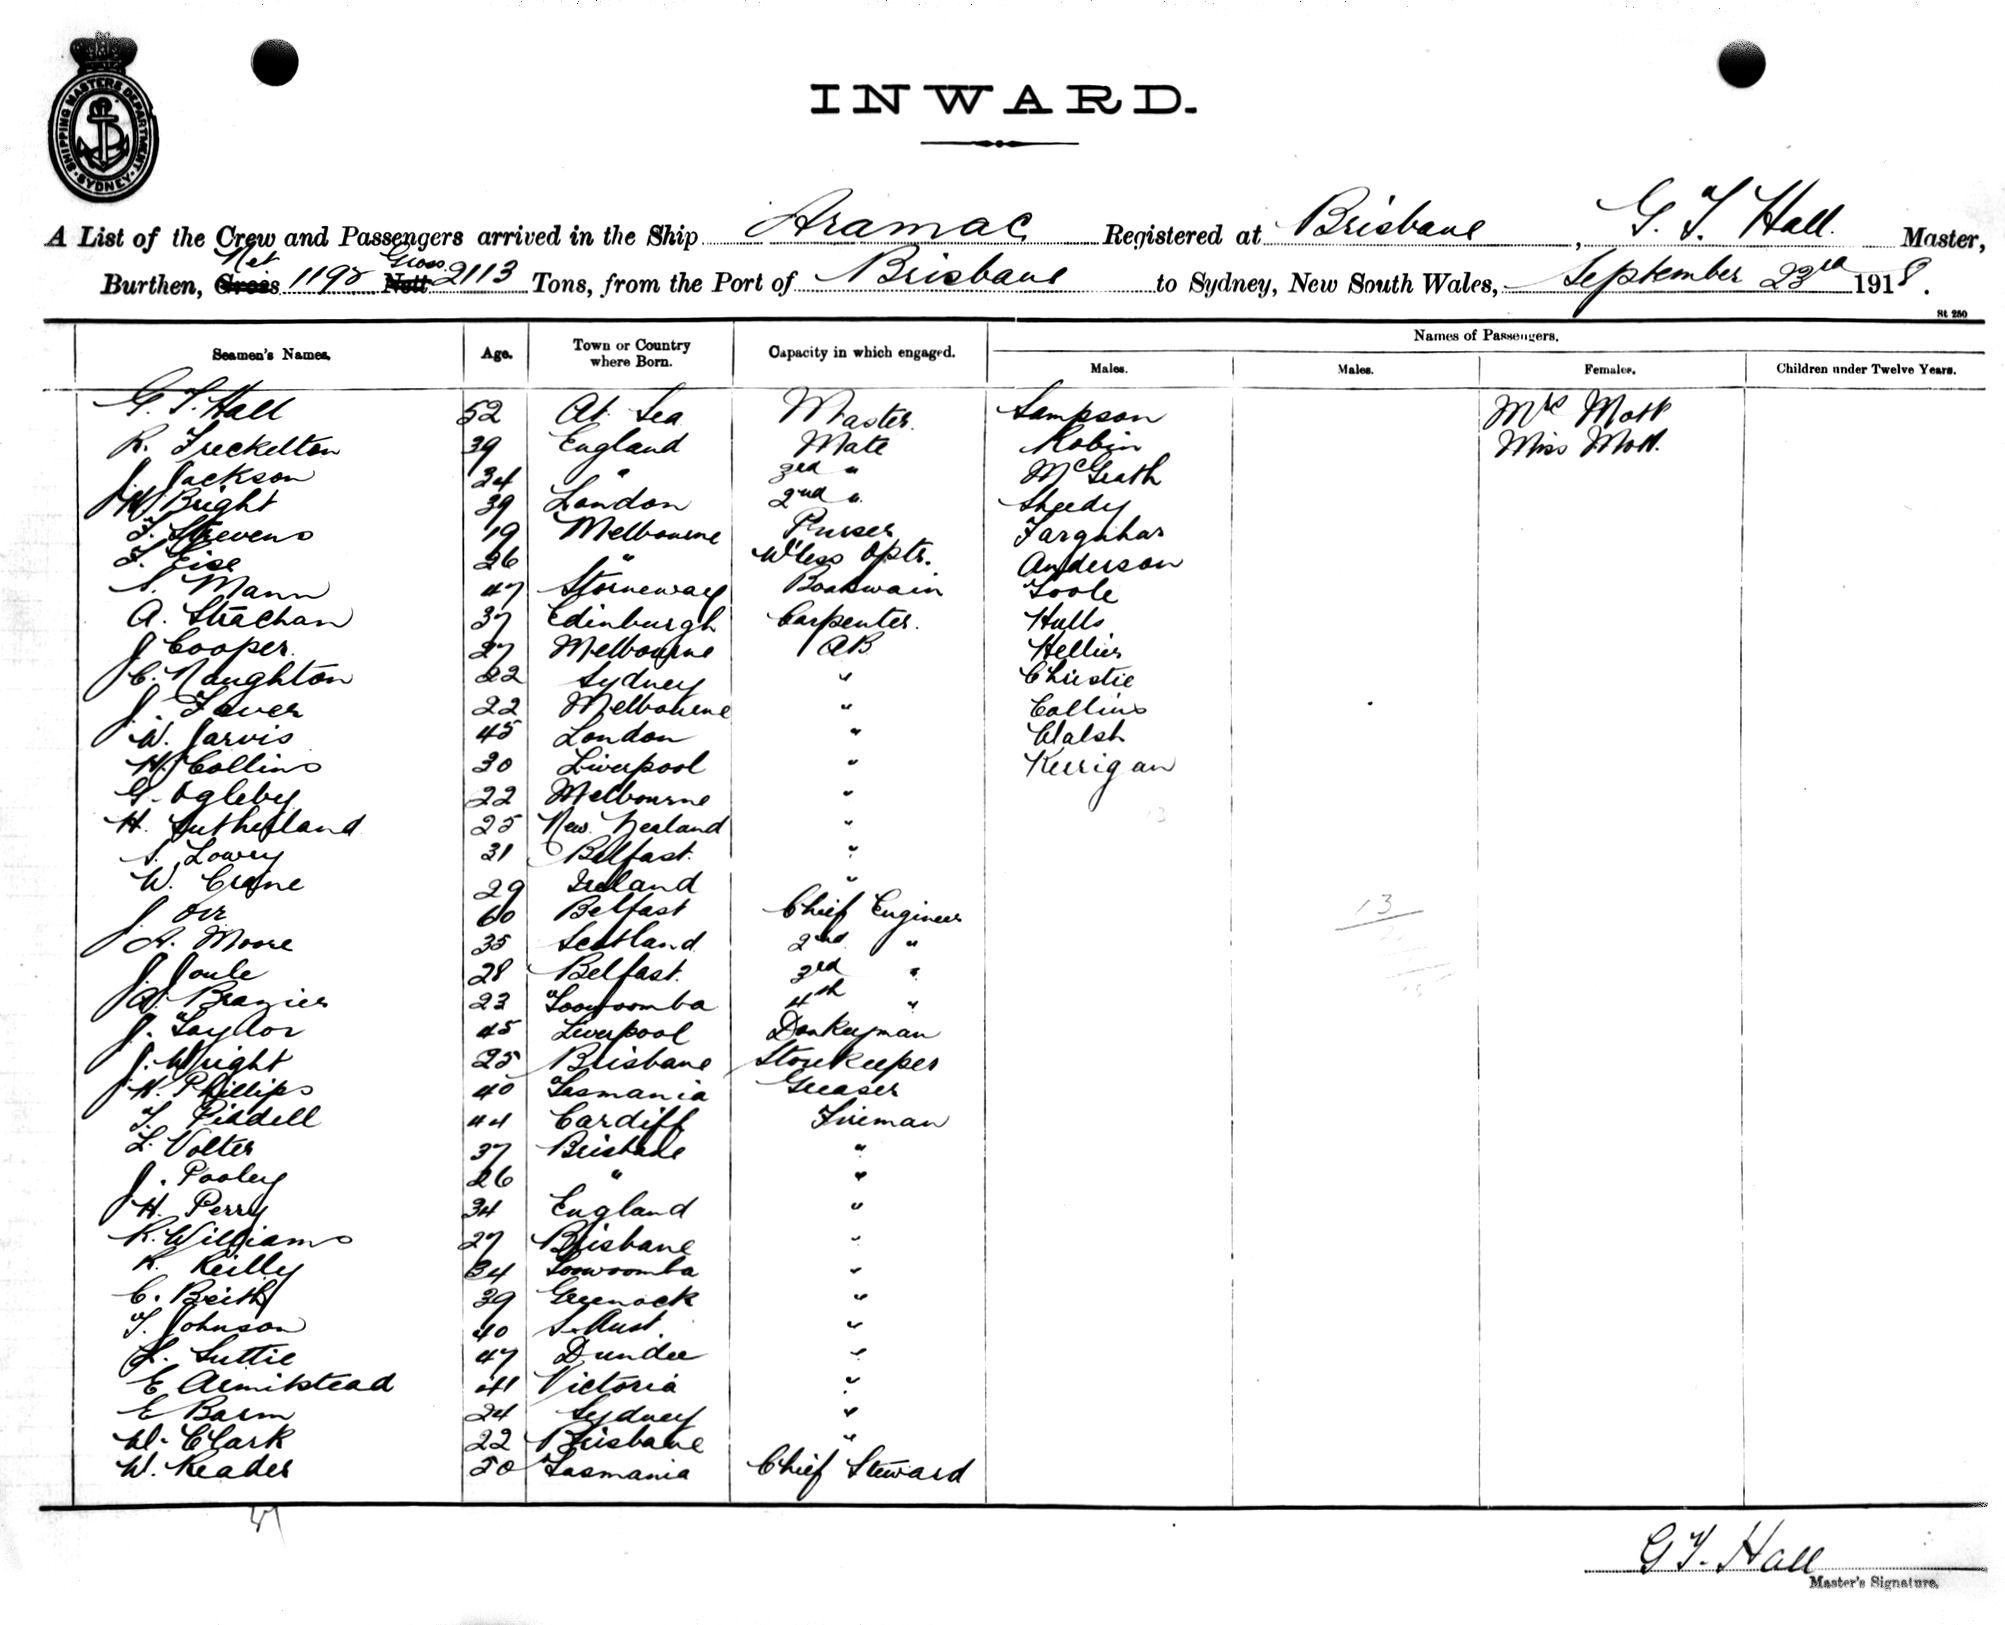 SHIPPING MASTERS DEPARTMENT SYDNEY
INWARD.
A List of the Crew and Passengers arrived in the Ship Aramac Registered at Brisbane, G. T. Hall. Master,
Net Gross
Burthen, Gross 1192 Nett 2113 Tons, from the Port of Brisbane to Sydney, New South Wales, September 23rd 1918.
St 250
Names of Passengers.
Seamen's Names. Age. Town or Country where Born. Capacity in which engaged. Males. Males. Females. Children under Twelve Years.
G. T. Hall 52 At Sea Master. Sampson Mrs Mott
R. Freckelton 39 England Mate Robin Miss Mott.
J. Jackson 34 " 3rd " McGrath
W. Bright 39 London 2nd " Sheedy
F. Stevens 19 Melbourne Purser Farquhar
26 " W'less Optr. Anderson
S. Mann 47 Storneway Boatswain Toole
A. Strachan 37 Edinburgh Carpenter. Hulls
J Cooper. 27 Melbourne AB Hellier
C. Naughton 22 Sydney " Christie
J. 22 Melbourne " Collins
W. Jarvis 45 London " Walsh
H. Collins 30 Liverpool " Kerrigan
G. Ogleby 22 Melbourne "
H. Sutherland 25 New Zealand "
S. Lowry 31 Belfast. "
W. Crane 29 Ireland "
J. Orr 60 Belfast Chief Engineer
A. Moore 35 Scotland 2nd "
J. Joule 28 Belfast. 3rd "
A. Brazier 23 Toowoomba 4th "
J. Taylor 45 Liverpool Donkeyman
J. Wright 25 Brisbane Storekeeper
H. Phillips 40 Tasmania Greaser
T. Riddell 44 Cardiff Fireman
L. Volter 37 Brisbane "
J. Pooley 26 " "
H. Perry 34 England "
R. Williams 27 Brisbane "
R. Reilly 34 Toowoomba "
C. Beith 39 Greenock "
T. Johnson 40 S. Aust. "
L. Suttie 47 Dundee "
E Armitstead 41 Victoria "
E Barm 24 Sydney "
W. Clark 22 Brisbane "
W. Reader 50 Tasmania Chief Steward
13
13
G T. Hall
Master's Signature.